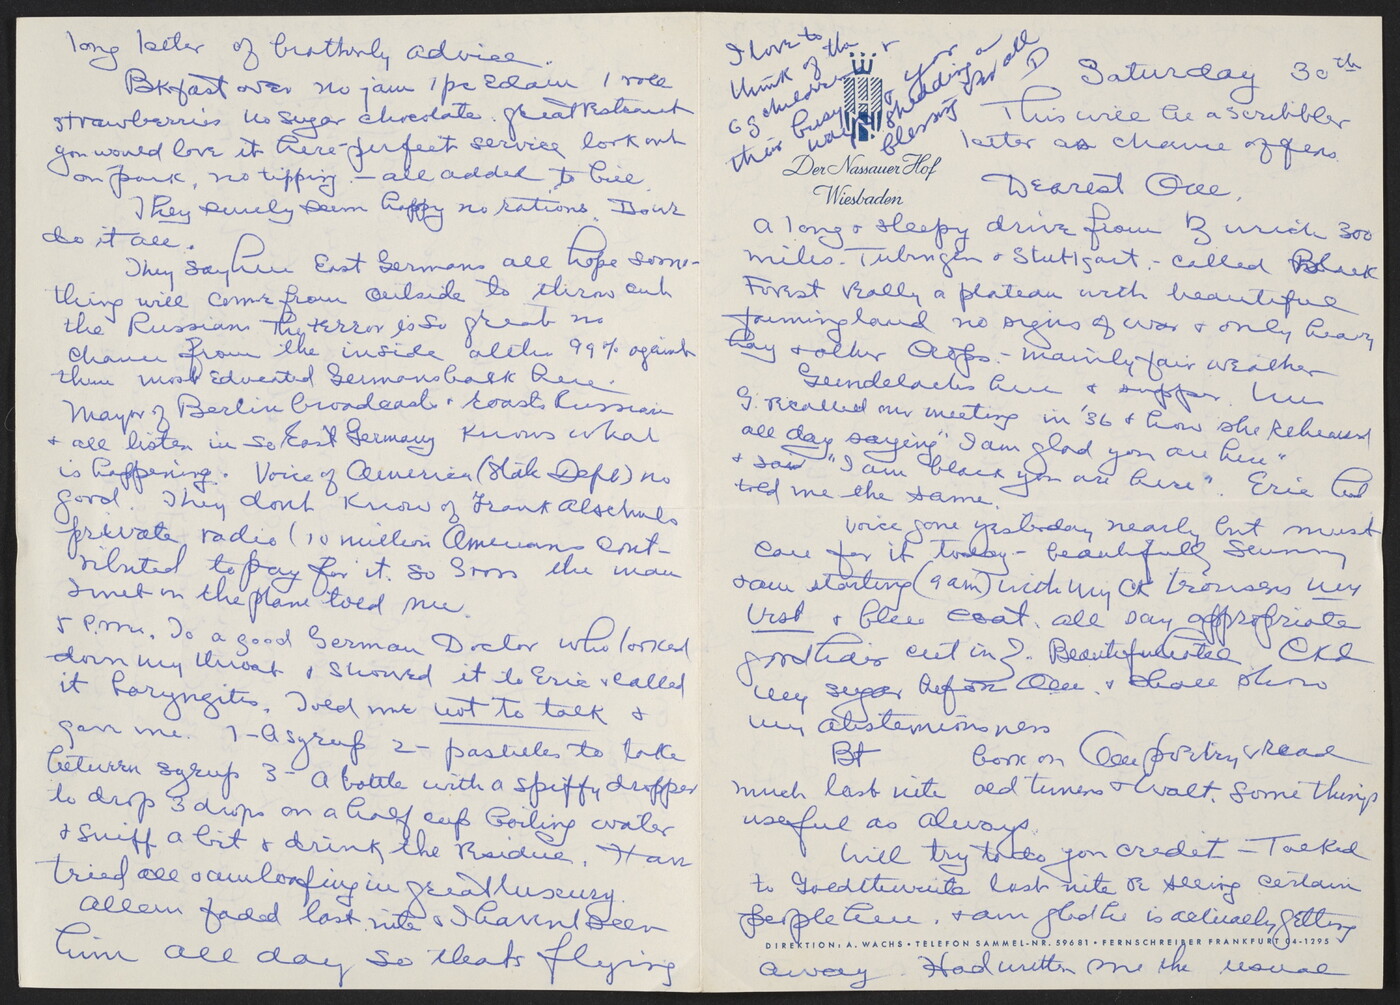 I love to
think of the +
63 children + your
their busy + shedding a
way blessing for all
D
Der Nassauer Hof
Wiesbaden
Saturday 30th
This will be a scribbler
letter as chance offers.
Dearest One,
A long + sleepy drive from Zurich 300
miles - Tubingen + Stuttgart - called Black
Forest really a plateau with beautiful
farming land no signs of war + only heavy
hay + other crops. - mainly fair weather
Gundelachs here + supper. Mrs
G. recalled our meeting in '36 + how she rehearsed
all day saying "I am glad you are here"
+ said "I am black you are here". Eric had
told me the same.
Voice gone yesterday nearly but must
care for it today - beautifully sunny
+ am starting (9 am) with my CK trousers my
Vest + blue coat. all day appropriate
good hair cut in Z. Beautiful hotel CKd
my sugar before One + shall show
my abstemiousness
Bt book on poetry + read
much last nite old timers + Walt. Some things
useful as always.
Will try to do you credit - Talked
to Goldthwaite last nite re seeing certain
people here. + am glad he is actually getting
DIREKTION: A. WACHS • TELEFON SAMMEL-NR. 59681 • FERNSCHREIBER FRANKFURT 04-1295
away. Had written me the usual
long letter of brotherly advice.
Bkfast over no jam 1 pc Edam 1 roll
strawberries no sugar chocolate. great restraint
you would love it here - perfect service look out
on park, no tipping - all added to bill.
They surely seem happy no rations. Dours
do it all.
They say here East Germans all hope some-
thing will come from outside to throw out
the Russians the terror is so great no
chance from the inside altho 99% against
them most educated Germans back here.
Mayor of Berlin broadcasts + roasts Russian
+ all listen in so East Germany knows what
is happening. Voice of America (State Dept) no
good. They dont know of Frank Altschuls
private radio (10 million Americans cont-
ributed to pay for it. So the man
I met on the plane told me
5 P.M. To a good German Doctor who looked
down my throat + showed it to Eric + called
it Laryngitis. Told me not to talk +
gave me. 1 - A syrup 2 - pastilles to take
between syrup 3 - A bottle with a spiffy dropper
to drop 3 drops on a half cup boiling water
+ sniff a bit + drink the residue. Have
tried all + am loafing in great luxury.
Allen faded last nite + I havent seen
him all day so thats flying